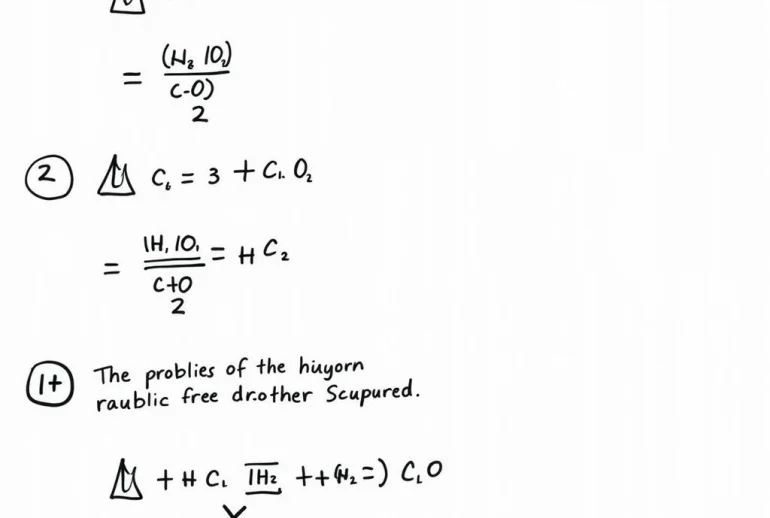 = (H₂ 1O₂)
C-O)
2
② C₆ = 3 + C₁. O₂
= 1H, 1O₁ = H C₂
C+O
2
1+ The problies of the hüyorn
raublic free dr.other Scupured.
+ H C₁ 1H₂ ++(H₂=) C₁O